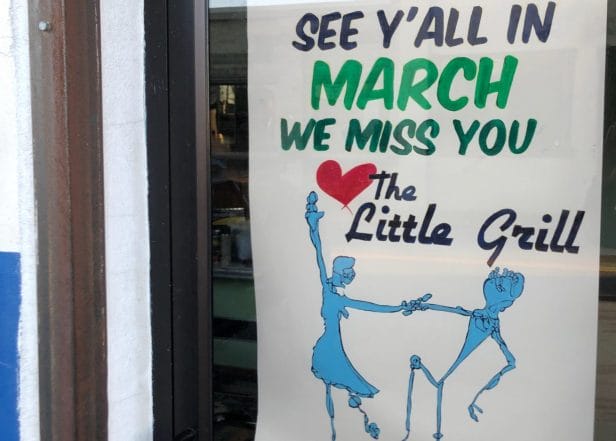 SEE Y'ALL IN
MARCH
WE MISS YOU
The
Little Grill